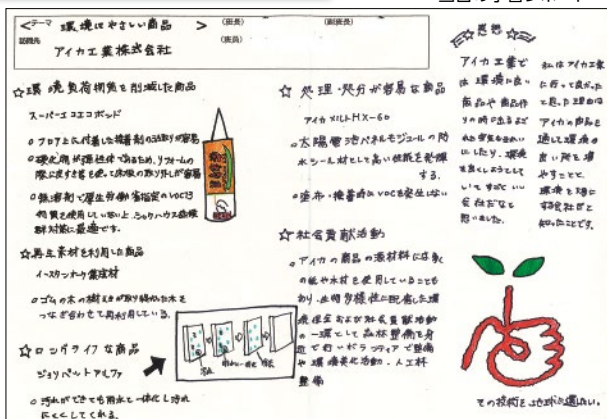 <テーマ 環境にやさしい商品 >
(班長)
(副班長)
訪問先 アイカ工業株式会社
(班員)
☆環境負荷物質を削減した商品
スーパーエコエコボンド
○フロア上に付着した接着剤のふき取りが容易
○硬化層が弾性体であるため、リフォームの
際に皮すき等を使って床板の取り外しが容易
○無溶剤で厚生労働省指定のVOC13
物質を使用していない上、シックハウス症候
群対策に最適です。
☆再生素材を利用した商品
イースタンオーク集成材
○ゴムの木の樹液が取り終わった木を
つなぎ合わせて再利用している。
☆ロングライフな商品
ジョリパットアルファ
○汚れができても雨水と一体化し汚れ
にくくしてくれる。
☆処理・処分が容易な商品
アイカメルトHX-60
○太陽電池パネルモジュールの防
水シール材として高い性能を発揮
する。
○塗布・接着時にVOCを発生しない
☆社会貢献活動
○アイカの商品の原材料には多く
の紙や木材を使用していることも
あり、生物多様性に配慮した環
境保全および社会貢献活動
の一環として森林整備を身
近で行いボランティアで整備
や環境美化活動、人工林
整備
☆感想☆
アイカ工業で
は環境に良い
商品や商品作
りの時に出るよご
れた空気をきれい
にしたり、環境
を良くしようとして
いてすごくいい
会社だなと
思いました。
私はアイカ工業
に行って良かった
と思った理由は
アイカの商品を
通して環境の
良い所を増
やすことで、
環境を大切に
する会社だと
知ったことです。
その技術を、地球に還したい。